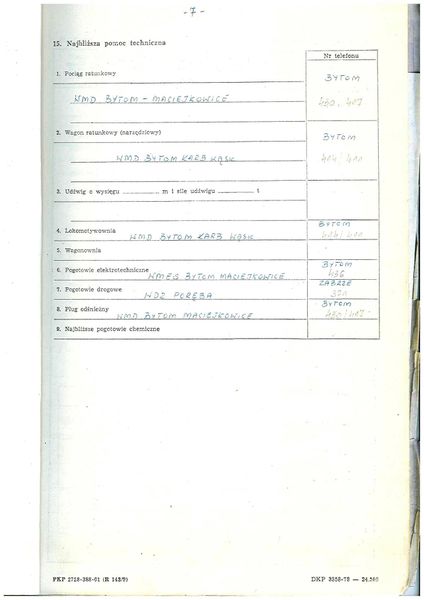 - 7 -
15. Najbliższa pomoc techniczna
Nr telefonu
1. Pociąg ratunkowy
BYTOM
WMD BYTOM - MACIEJKOWICE
430, 417
2. Wagon ratunkowy (narzędziowy)
BYTOM
WMD BYTOM KARB WĄSK
414/411
3. Udźwig o wysięgu ............ m i sile udźwigu ............ t
4. Lokomotywownia
BYTOM
WMD BYTOM KARB WĄSK
414/411
5. Wagonownia
6. Pogotowie elektrotechniczne
BYTOM
WMEG BYTOM MACIEJKOWICE
436
7. Pogotowie drogowe
ZABRZE
WDZ PORĘBA
321
8. Pług odśnieżny
BYTOM
WMD BYTOM MACIEJKOWICE
430/417
9. Najbliższe pogotowie chemiczne
PKP 2718-388-01 (R 142/9)